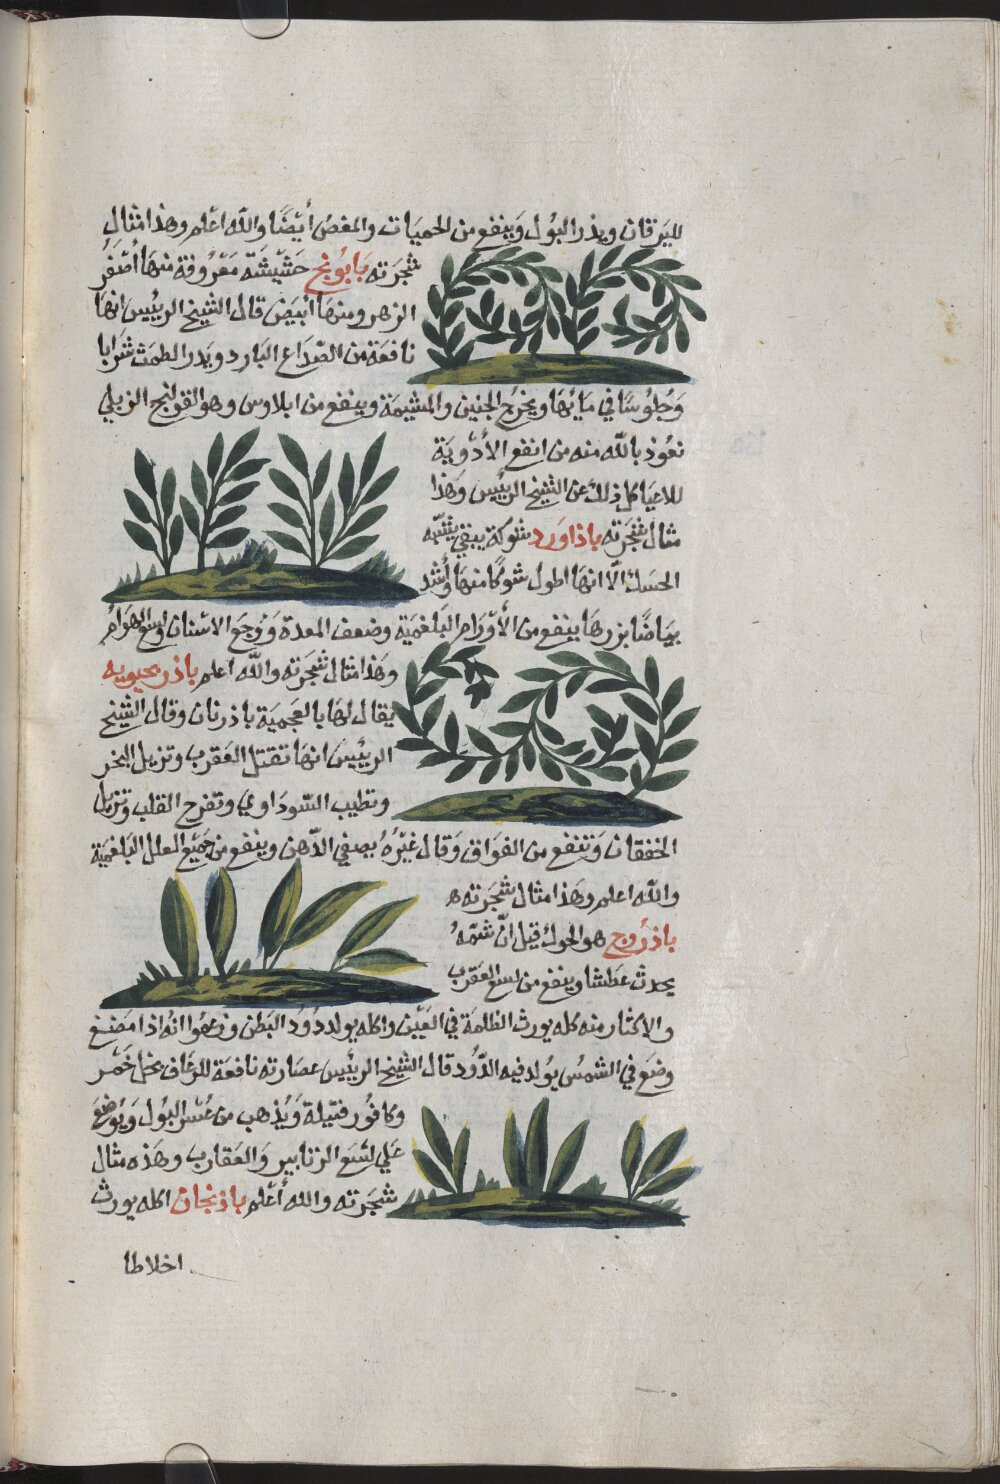 لليرقان ويذر البول وينفع من الحميات والمغص أيضًا والله اعلم وهذا مثال
شجرته بابونج حشيشة معروفة منها أصفر
الزهر ومنها ابيض قال الشيخ الرييس انها
نافعة من الصداع البارد ويدر الطمث شرابا
وجلوسا في مائها ويخرج الجنين والمشيمة وينفع من ايلاوس وهو القولنج الزبلي
نعوذ بالله منه من انفع الأدوية
للاعيا كل ذلك عن الشيخ الرييس وهذا
مثال شجرته باذاورد شوكة يبقي يشبه
الحسك الا انها اطول شوكا منها وأشد
بياضا بزرها ينفع من الأورام البلغمية وضعف المعدة ووجع الاسنان ولسع الهوام
وهذا مثال شجرته والله اعلم باذرنجبويه
يقال لها بالعجمية باذرنان وقال الشيخ
الرييس انها تقتل العقرب وتزيل البخر
وتطيب السوداوي وتفرح القلب وتزيل
الخفقان وتنفع من الفواق وقال غيره يصفي الذهن وينفع من جميع العلل البلغمية
والله اعلم وهذا مثال شجرته ه
باذروج هو الحوك قيل انّ شمه
يحدث عطشا وينفع من لسع العقرب
والاكثار منه كله يورث الظلمة في العين واكله يولد دود البطن وزعموا انه اذا مضغ
وضع في الشمس يولد فيه الدود قال الشيخ الرييس عصارته نافعة للرعاف بخل خمر
وكافور فتيلة ويذهب من عسر البول ويوضع
علي لسع الزنابير والعقارب وهذه مثال
شجرته والله أعلم باذنجان اكله يورث
اخلاطا